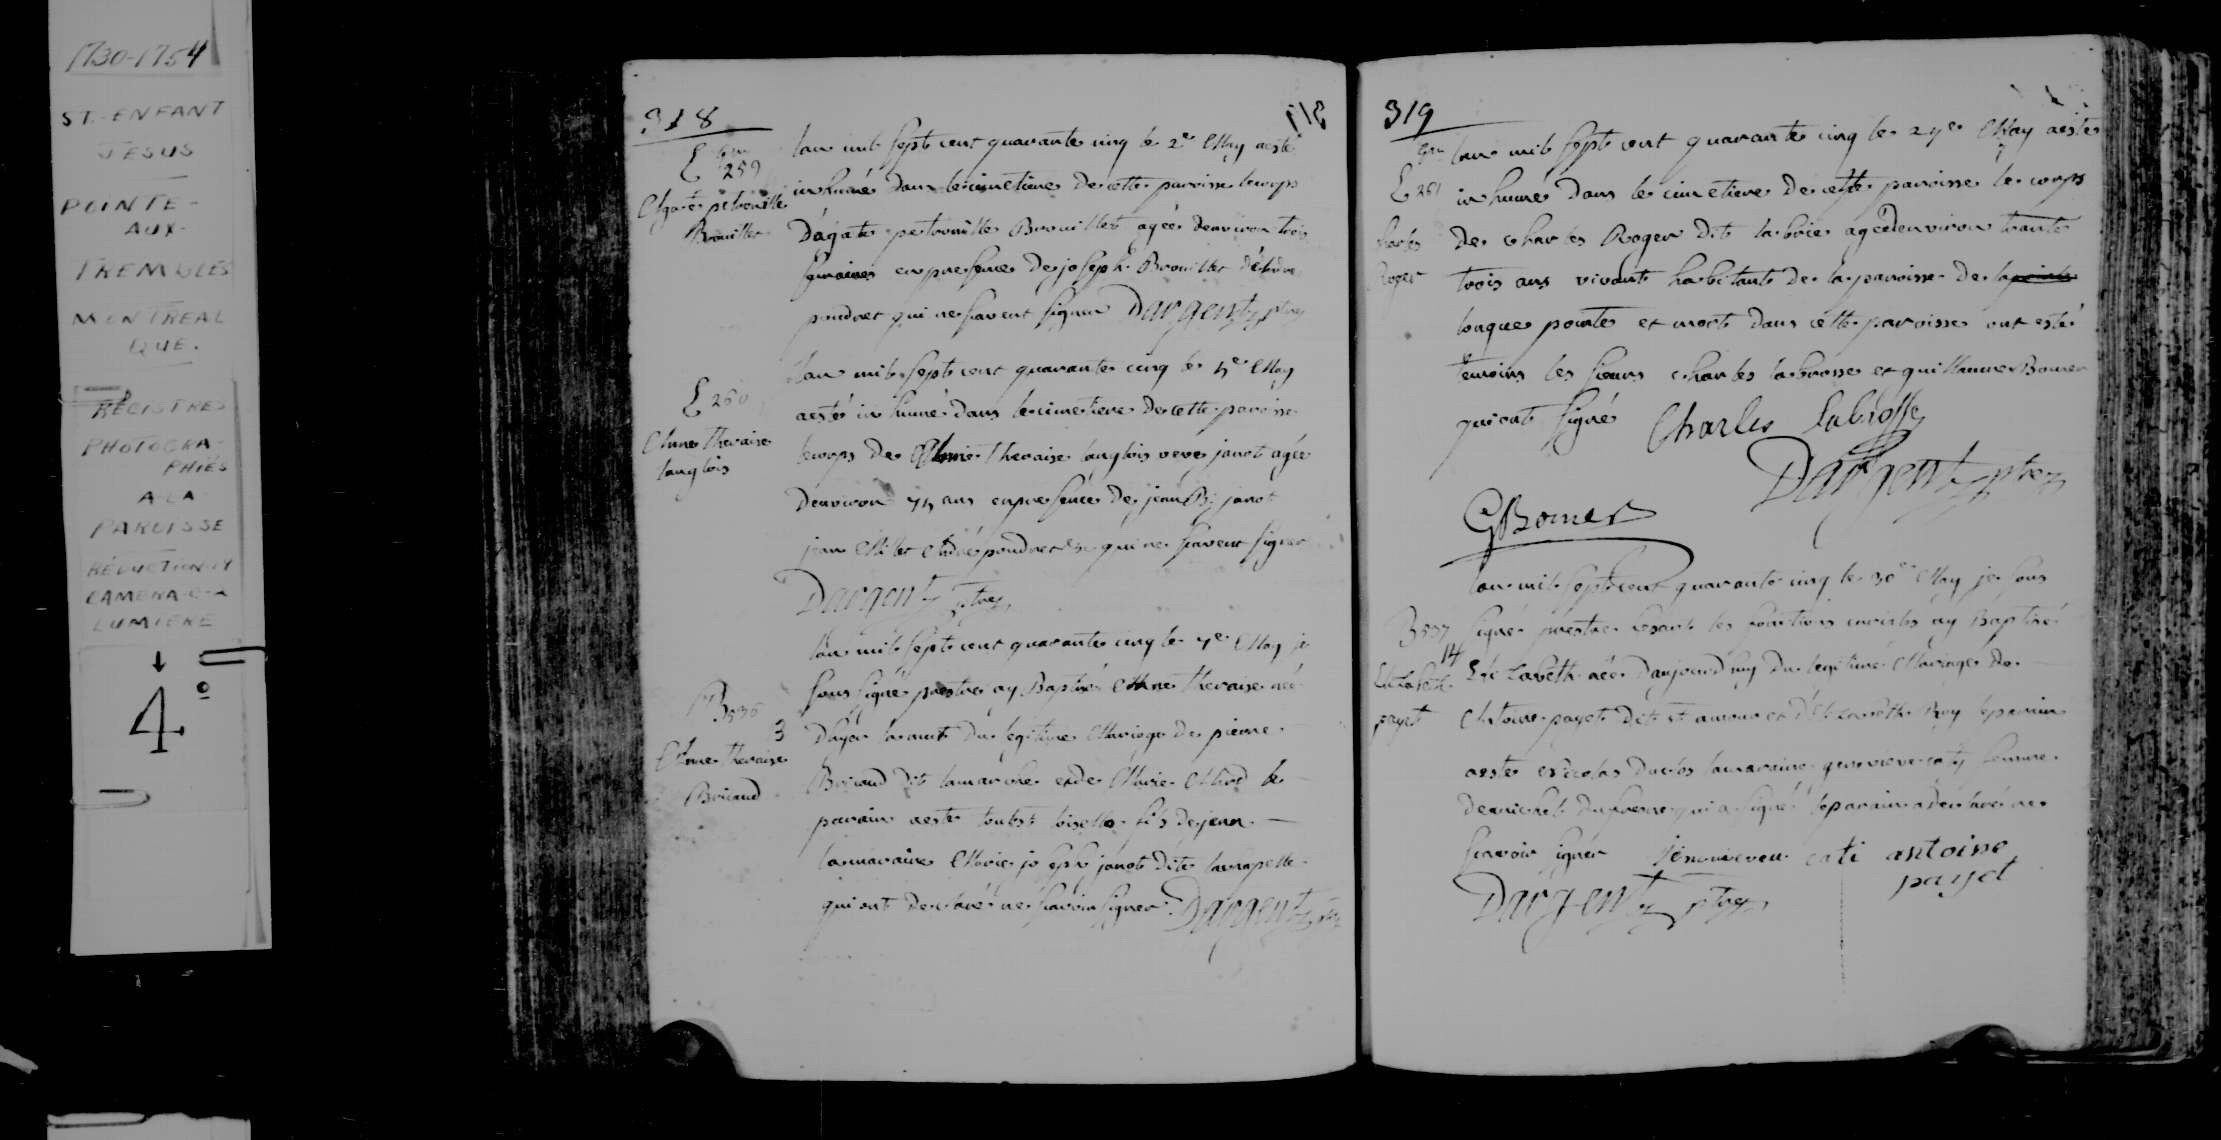 1730-1754
ST-ENFANT
JESUS
POINTE-
AUX-
TREMBLES
MONTREAL
QUE.
REGISTRES
PHOTOGRA-
PHIÉS
A LA
PAROISSE
REDUCTION
CAMERA
LUMIERE
4º
318
E 259
Agate petronille
Brouillet
lan mil sept cent quarante cinq le 2e May aesté
inhumé dans le cimetiere de cette paroisse le corps
Dagate petronille Brouillet agée denviron trois
semaines en presence de joseph Brouillet
poudret qui ne scavent signer Dargent ptre
E 260
Anne theraise
langlois
lan mil sept cent quarante cinq le 5e May
aesté inhumé dans le cimetiere de cette paroisse
le corps de Anne theraise langlois veve janot agée
denviron ans en presence de jean Bt janot
jean Millet poudret &c qui ne scavent signer
Dargent ptre
B 536
3
Anne theraise
Briand
lan mil sept cent quarante cinq le 7e May je
sous signé prestre ay Baptisé Anne theraise née
dhyer la nuit du legitime Mariage de pierre
Briand dit lamarche et de Marie le
parain aesté toust loiselle fils de jean
la maraine Marie joseph janot dite lachapelle
qui ont declaré ne scavoir signer Dargent ptre
319
E 261
charles
Roger
lan mil sept cent quarante cinq le 29e May aesté
inhumé dans le cimetiere de cette paroisse le corps
de charles Roger dit labrie agé denviron trante
trois ans vivant habitant de la paroisse de la pointe
longue pointe et mort dans cette paroisse ont esté
temoins les sieurs charles labrosse et guillaume Bomer
qui ont signé Charles labrosse
Dargent ptre
GBomer
B 537
14
Elizabeth
payet
lan mil sept cent quarante cinq le 30e May je sous
signé prestre fesant les fonctions curiales ay Baptisé
Elizabeth née daujourdhuy du legitime Mariage de
Antoine payet dit st amour et d'Elizabeth Roy le parain
aesté Nicolas duclos la maraine genevieve caty femme
de michel dufresne qui a signé le parain a declaré ne
scavoir signer jenevieveu cati antoine
payet
Dargent ptre